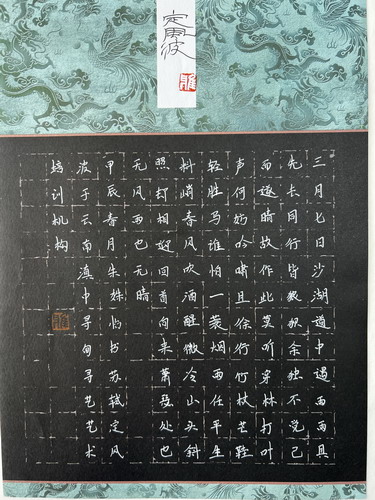 定风波
三月七日沙湖道中遇雨雨具
先去同行皆狼狈余独不觉已
而遂晴故作此莫听穿林打叶
声何妨吟啸且徐行竹杖芒鞋
轻胜马谁怕一蓑烟雨任平生
料峭春风吹酒醒微冷山头斜
照却相迎回首向来萧瑟处也
无风雨也无晴
甲辰春月朱姝书苏轼定风
波于云南滇中寻甸寻艺艺术
培训机构